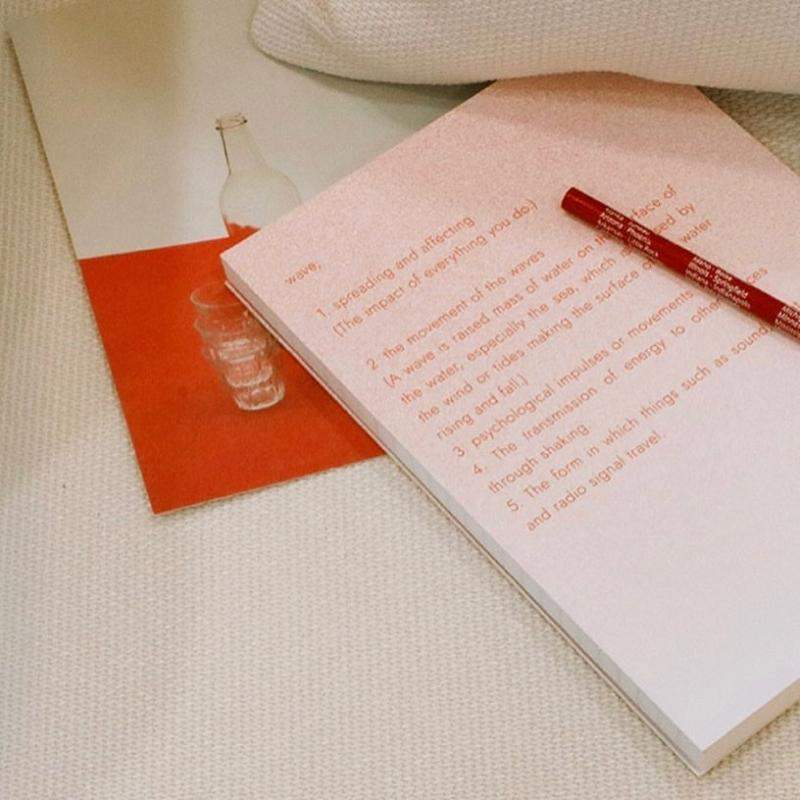 wave,
1. spreading and affecting
(The impact of everything you do.)
2. the movement of the waves
(A wave is raised mass of water on the surface of
the water, especially the sea, which is by
the wind or tides making the surface of water
rising and fall.)
3 psychological impulses or movements
4. The transmission of energy to
through shaking
5. The form in which things such as sound,
and radio signal travel.
Arizona - Phoenix
Arkansas - Little Rock
Idaho - Boise
Illinois - Springfield
Indiana - Indianapolis